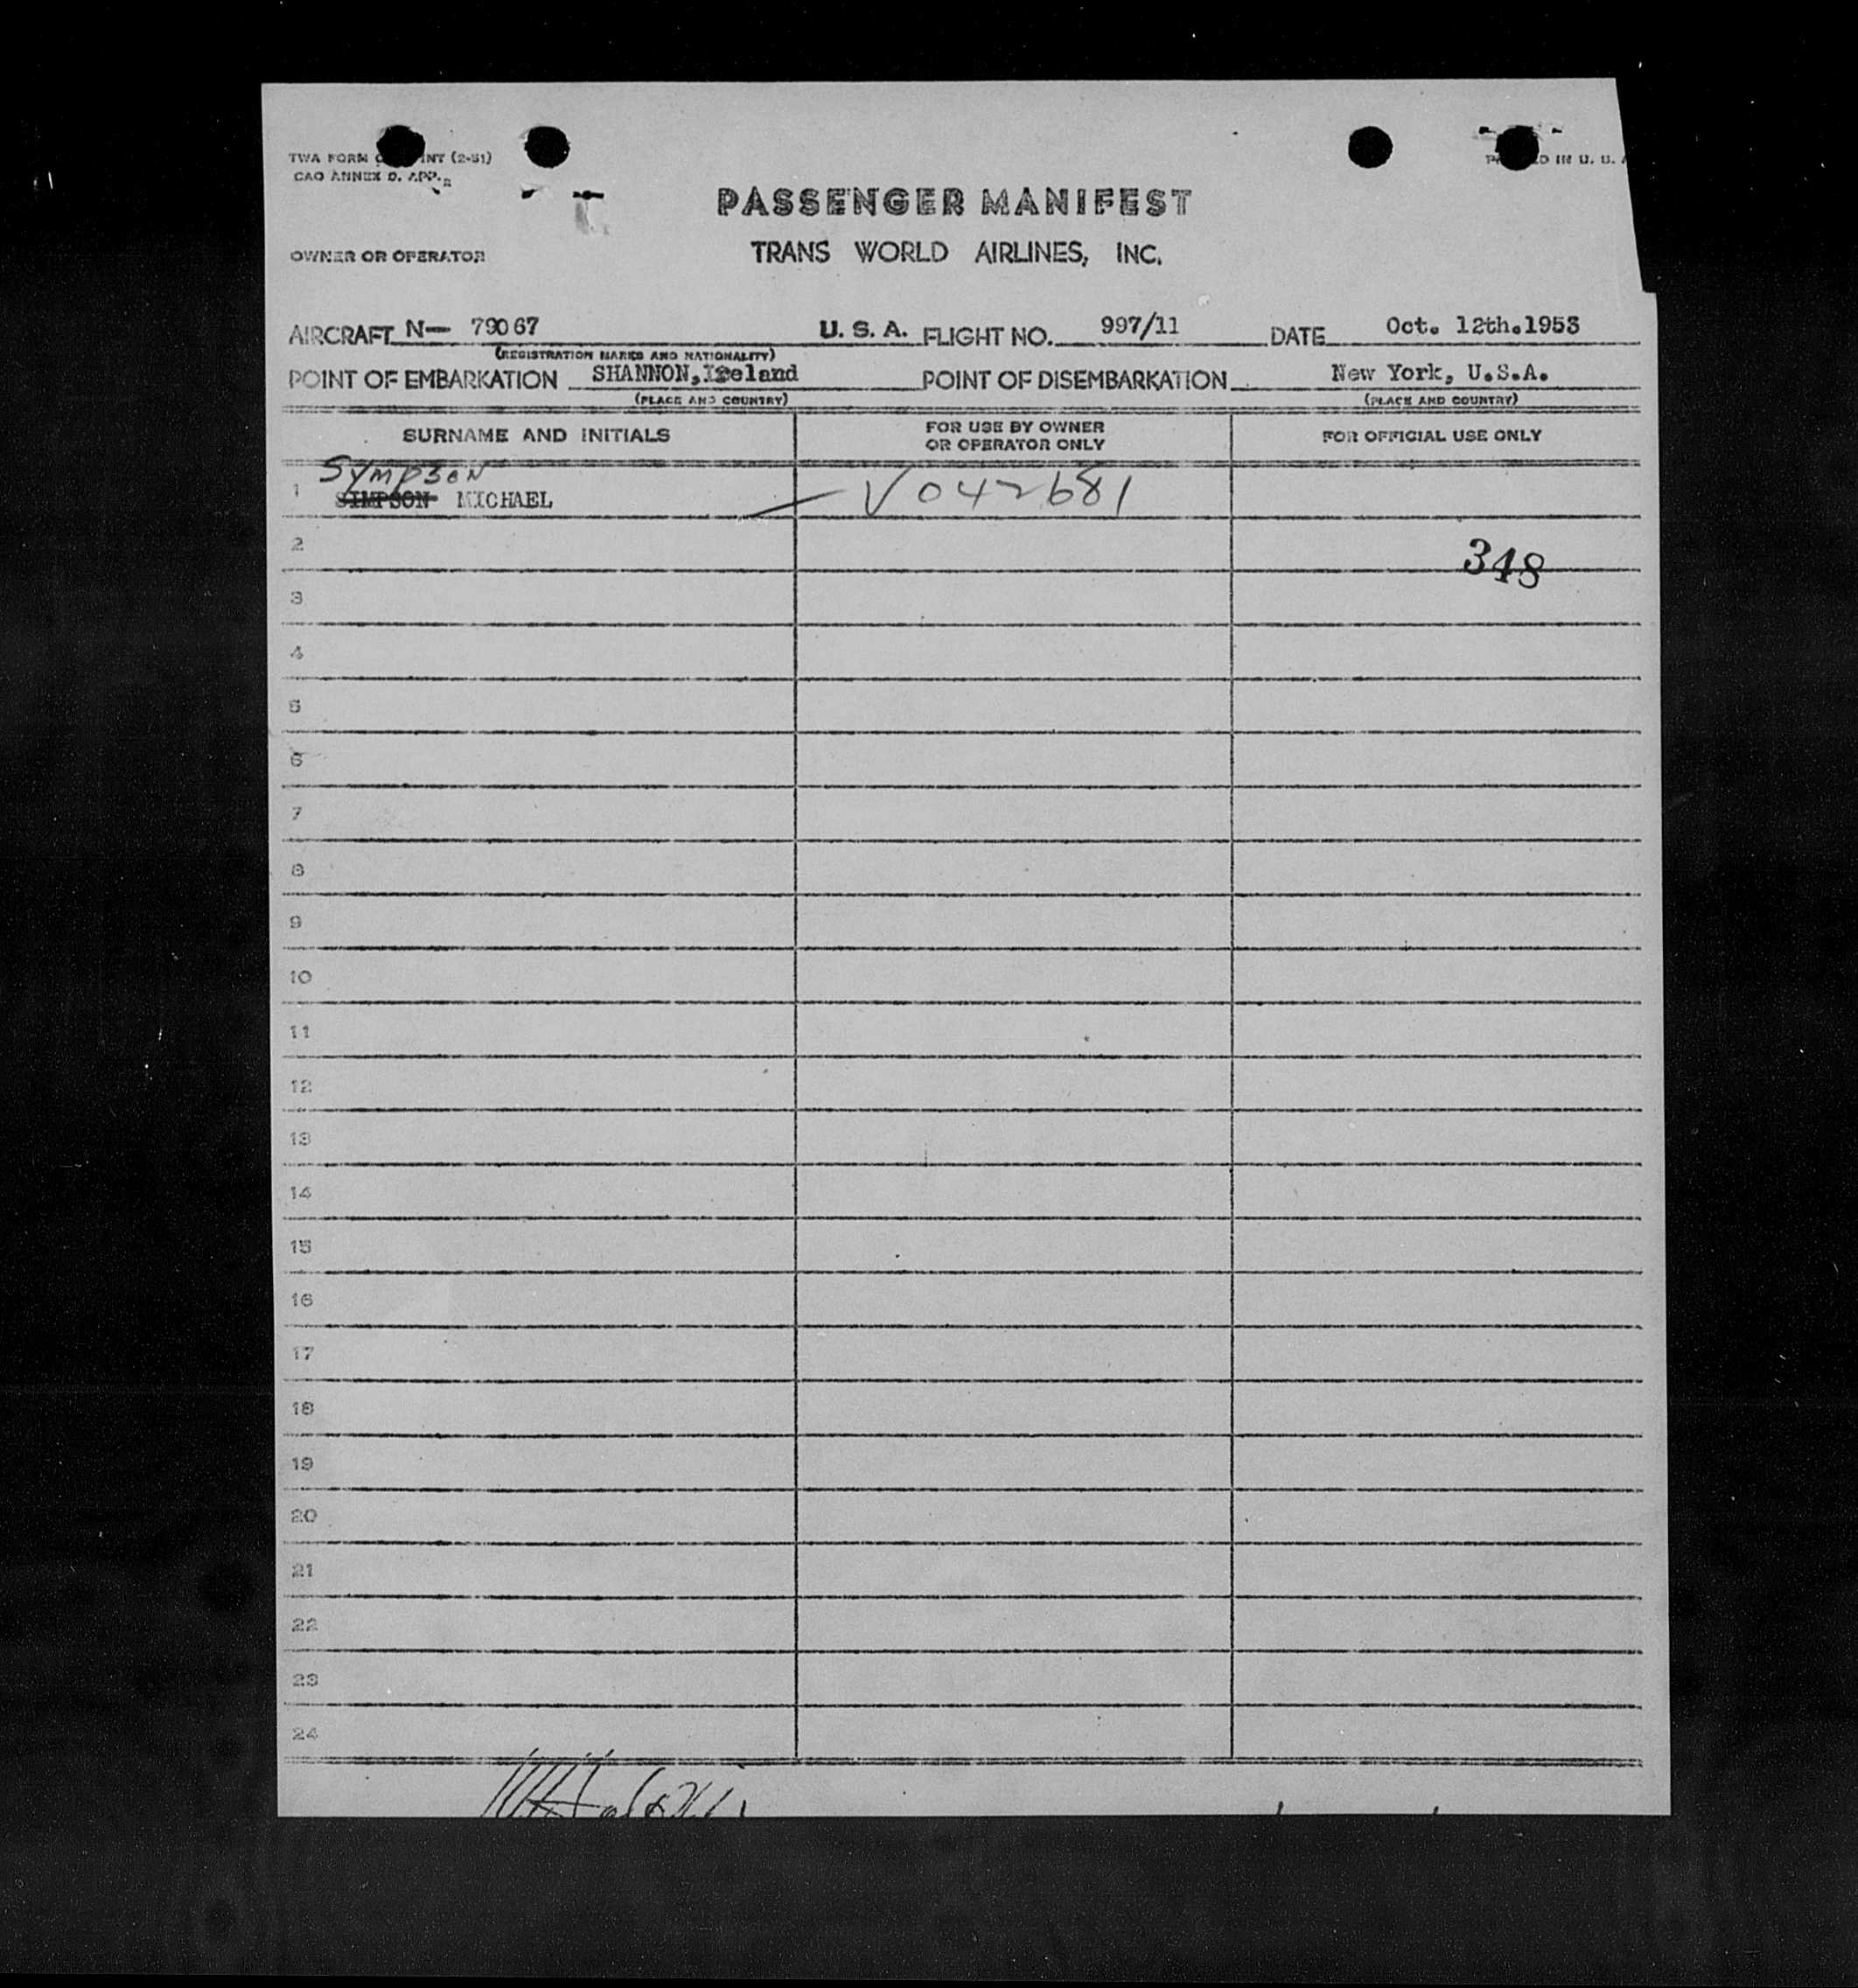 TWA FORM INT (2-51)
CAO ANNEX 9. APP. 2
IN U. S. A
PASSENGER MANIFEST
OWNER OR OPERATOR TRANS WORLD AIRLINES, INC.
AIRCRAFT N- 79067 U. S. A. FLIGHT NO. 997/11 DATE Oct. 12th.1953
(REGISTRATION MARKS AND NATIONALITY)
POINT OF EMBARKATION SHANNON, Ireland POINT OF DISEMBARKATION New York, U.S.A.
(PLACE AND COUNTRY) (PLACE AND COUNTRY)
SURNAME AND INITIALS FOR USE BY OWNER OR OPERATOR ONLY FOR OFFICIAL USE ONLY
SYMPSON
1 SIMPSON MICHAEL V042681
2 348
3
4
5
6
7
8
9
10
11
12
13
14
15
16
17
18
19
20
21
22
23
24